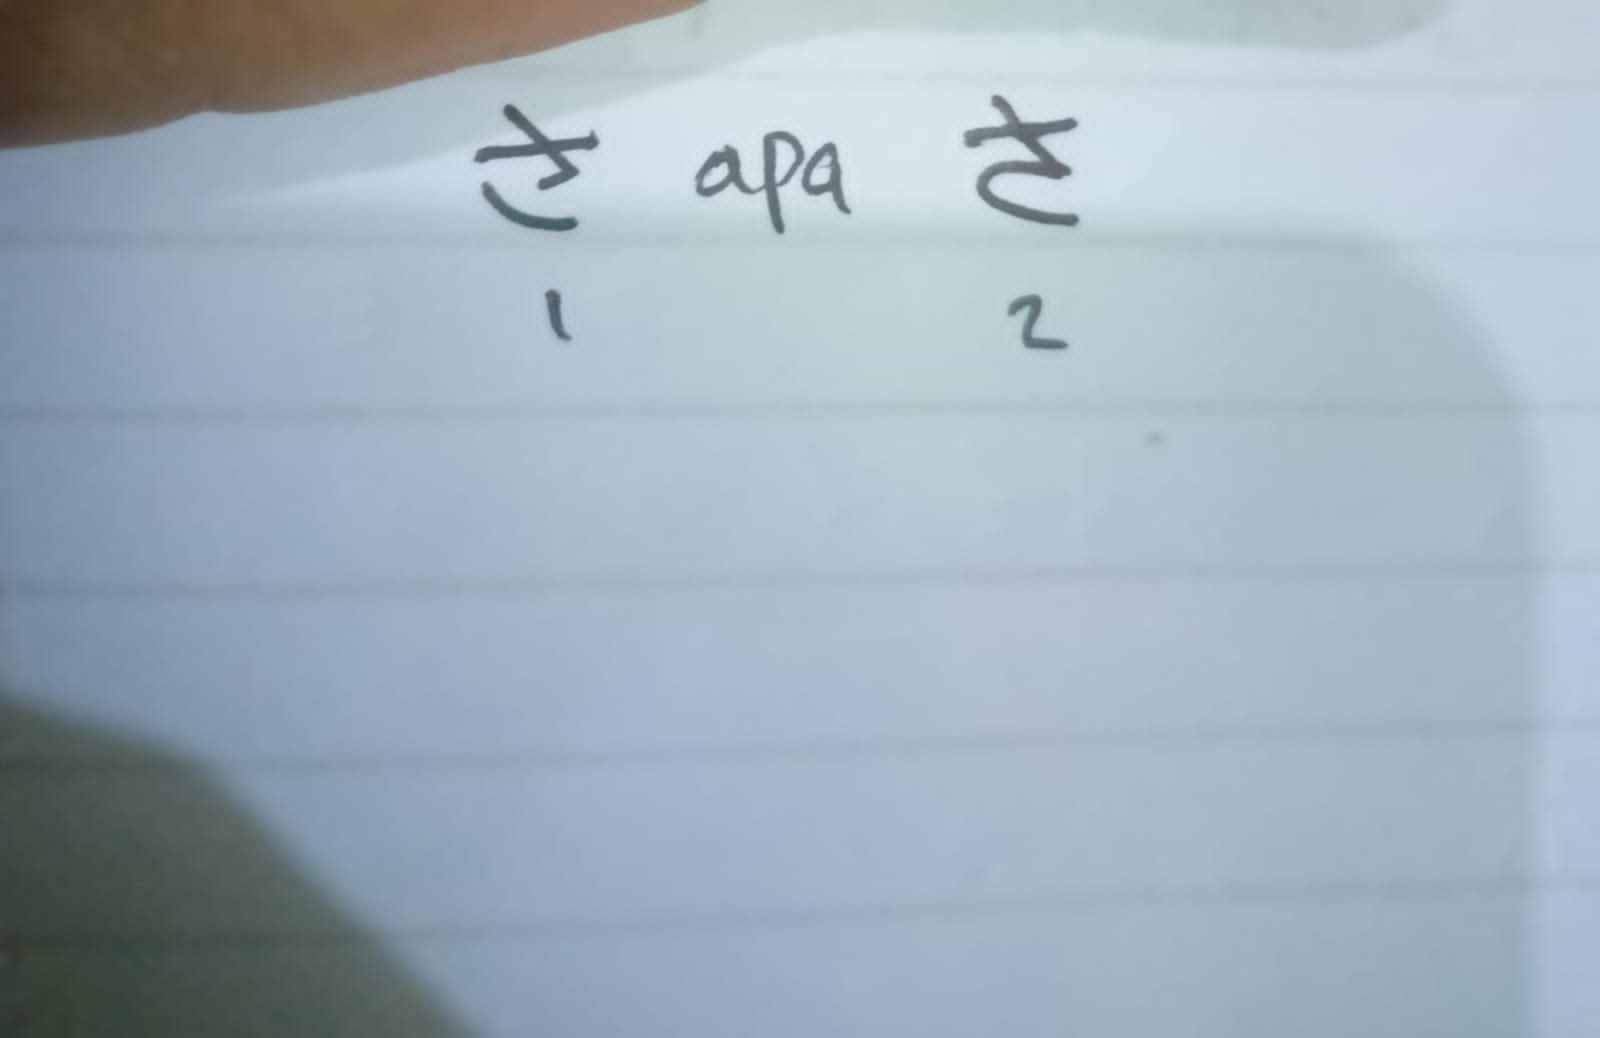 さ apa さ
1 2